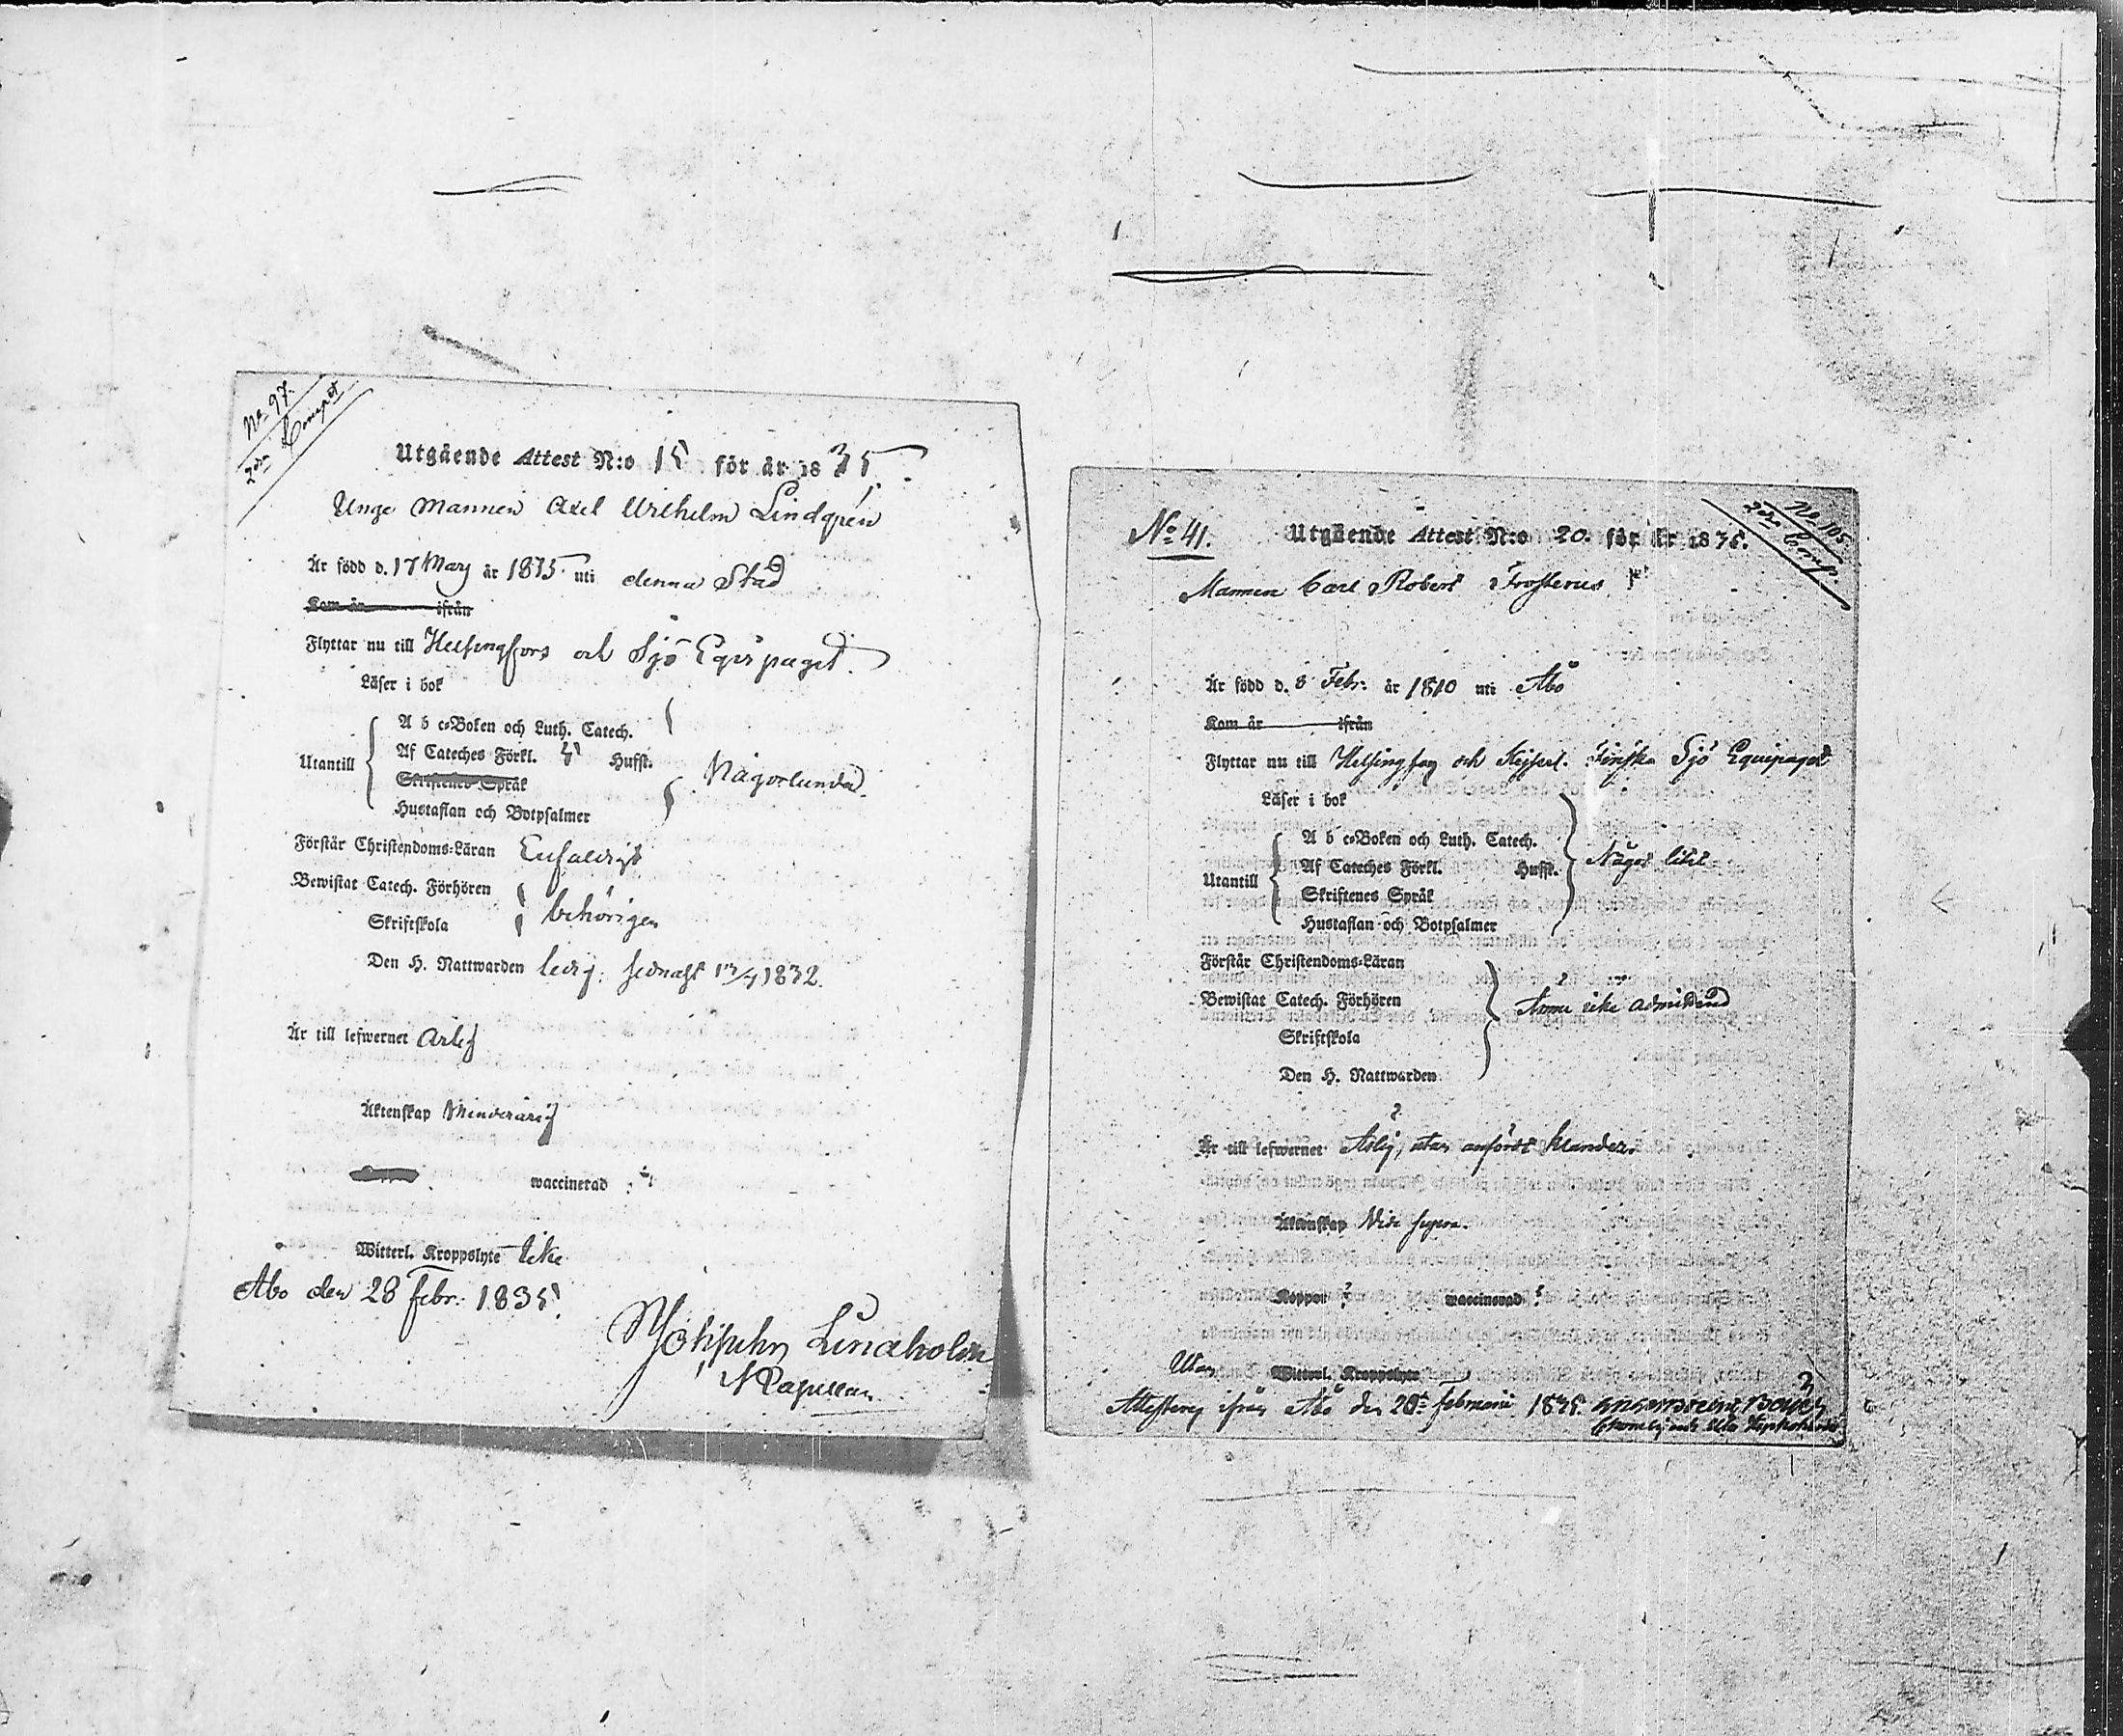 No 97.
2dra Comp:t
Utgående Attest N:o 15 för år 1835.
Unge Mannen Axel Wilhelm Lindgrén
Är född d. 17 Maij år 1815 uti denna Stad
Kom år ifrån
Flyttar nu till Helsingfors och Sjö Equipaget.
Läser i bok
Utantill
A b c-Boken och Luth. Catech.
Af Cateches Förkl. Hufst.
Skriftenes Språk
Hustaflan och Botpsalmer
Någorlunda
Förstår Christendoms-Läran Enfaldigt
Bewistat Catech. Förhören
Skriftskola
behörigen
Den H. Nattwarden ledig. sednast 1832.
Är till lefwernet ärlig
Äktenskap Minderårig
waccinerad
Witterl. Kroppslyte icke
Åbo den 28 Febr: 1835.
Lindholm
No 41.
No 105.
2dra Comp.
Utgående Attest N:o 20. för år 1835.
Mannen Carl Robert Frosterus
Är född d. 8 Febr. år 1810 uti Åbo
Kom år ifrån
Flyttar nu till Helsingfors och Kejserl. Finska Sjö Equipaget
Läser i bok
Utantill
A b c-Boken och Luth. Catech.
Af Cateches Förkl. Hufst.
Skriftenes Språk
Hustaflan och Botpsalmer
Något litet
Förstår Christendoms-Läran
Bewistat Catech. Förhören
Skriftskola
Den H. Nattwarden
Ännu icke admitterad
Är till lefwernet Ärlig, utan anfördt klander.
Äktenskap Vide supra.
Koppor ? waccinerad ?
Utan Witterl. Kroppslyte
Attesteras ifrån Åbo den 28 Februarii 1835.